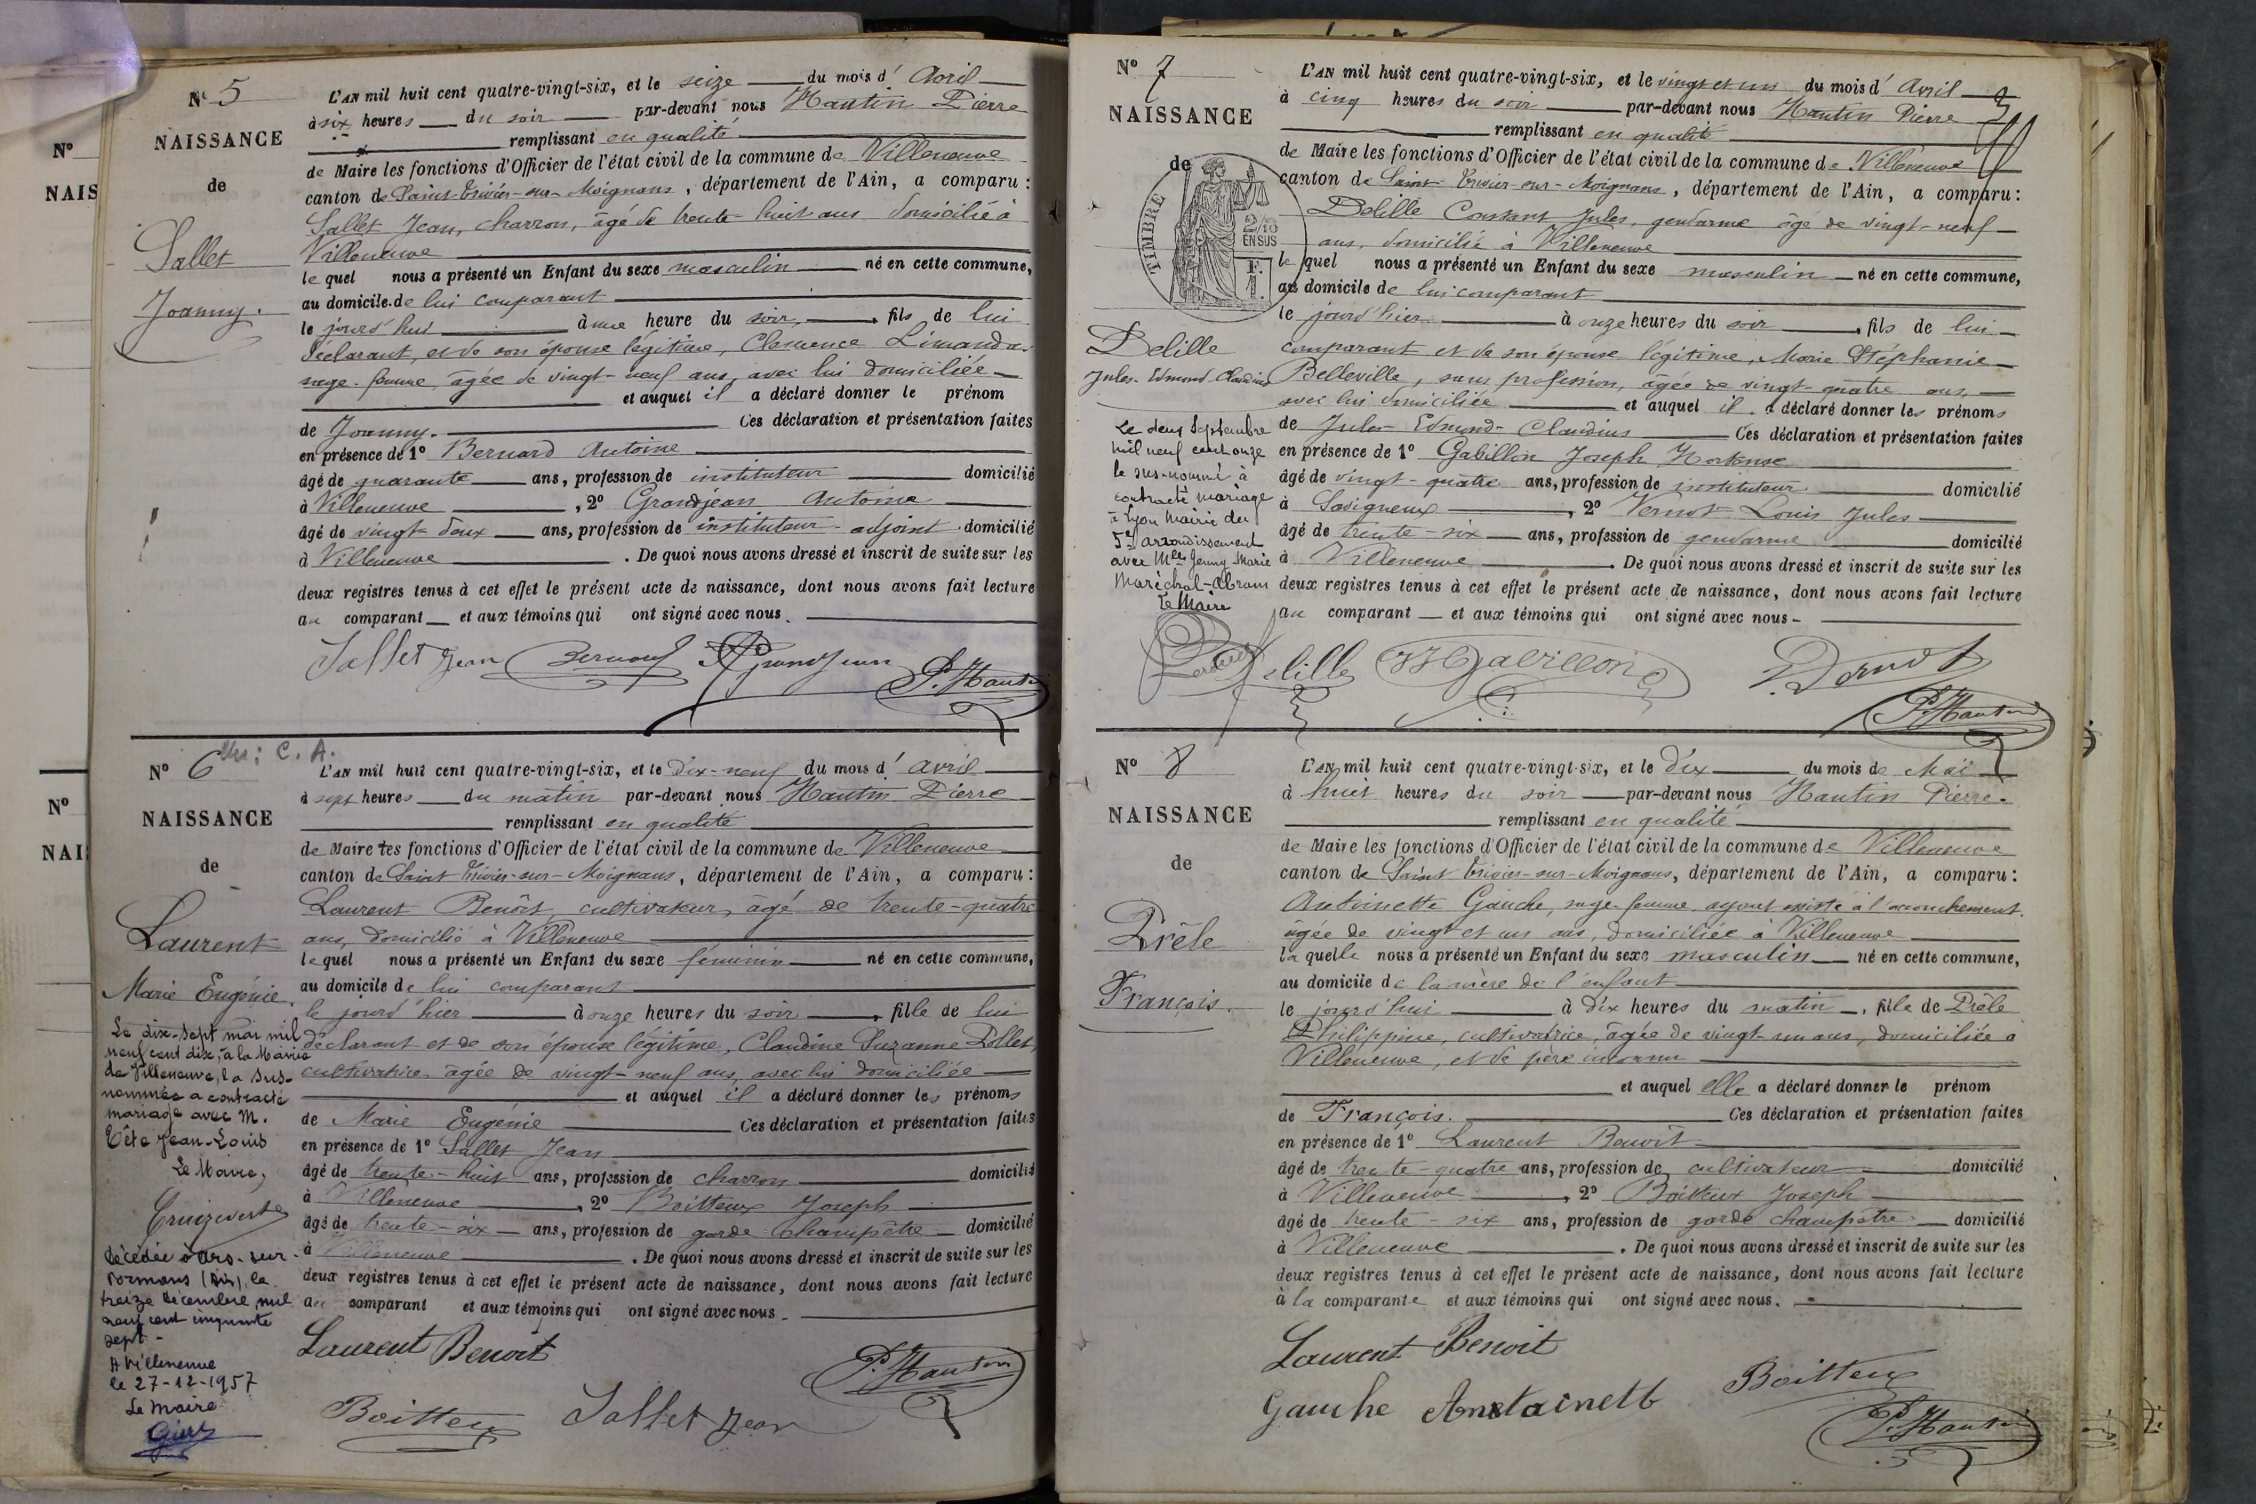 Nº
NAIS
Nº
NAI
Nº 5
NAISSANCE
de
Sallet
Joanny.
L'AN mil huit cent quatre-vingt-six, et le seize du mois d' Avril
à six heures du soir par-devant nous Hautin Pierre
remplissant en qualité
de Maire les fonctions d'Officier de l'état civil de la commune de Villeneuve
canton de Saint-Trivier-sur-Moignans, département de l'Ain, a comparu :
Sallet Jean, charron, âgé de trente-huit ans domicilié à
Villeneuve
le quel nous a présenté un Enfant du sexe masculin né en cette commune,
au domicile de lui comparant
le jourd'hui à une heure du soir, fils de lui
déclarant, et de son épouse légitime, Clémence Limandas
sage-femme, âgée de vingt-neuf ans, avec lui domiciliée
et auquel il a déclaré donner le prénom
de Joanny. Ces déclaration et présentation faites
en présence de 1º Bernard Antoine
âgé de quarante ans, profession de instituteur domicilié
à Villeneuve, 2º Grandjean Antoine
âgé de vingt-deux ans, profession de instituteur-adjoint domicilié
à Villeneuve. De quoi nous avons dressé et inscrit de suite sur les
deux registres tenus à cet effet le présent acte de naissance, dont nous avons fait lecture
au comparant et aux témoins qui ont signé avec nous.
Sallet Jean Bernard Grandjean P. Hautin
Nº 6 C. A.
NAISSANCE
de
Laurent
Marie Eugénie.
Le dix-sept mai mil
neuf cent dix, à la Mairie
de Villeneuve, la sus-
nommée a contracté
mariage avec M.
Tête Jean-Louis
Le Maire,
Décédée à Ars-sur-
Formans (Ain), le
treize décembre mil
neuf cent cinquante
sept.
A Villeneuve
le 27-12-1957
Le Maire
L'AN mil huit cent quatre-vingt-six, et le dix-neuf du mois d' avril
à sept heures du matin par-devant nous Hautin Pierre
remplissant en qualité
de Maire les fonctions d'Officier de l'état civil de la commune de Villeneuve
canton de Saint-Trivier-sur-Moignans, département de l'Ain, a comparu :
Laurent Benôit, cultivateur, âgé de trente-quatre
ans, domicilié à Villeneuve
le quel nous a présenté un Enfant du sexe féminin né en cette commune,
au domicile de lui comparant
le jourd'hier à onze heures du soir, fille de lui
déclarant et de son épouse légitime, Claudine Suzanne Pollet,
cultivatrice, âgée de vingt-neuf ans, avec lui domiciliée
et auquel il a déclaré donner les prénoms
de Marie Eugénie Ces déclaration et présentation faites
en présence de 1º Sallet Jean
âgé de trente-huit ans, profession de charron domicilié
à Villeneuve, 2º Boitteux Joseph
âgé de trente-six ans, profession de garde champêtre domicilié
à Villeneuve. De quoi nous avons dressé et inscrit de suite sur les
deux registres tenus à cet effet le présent acte de naissance, dont nous avons fait lecture
au comparant et aux témoins qui ont signé avec nous.
Laurent Benoit P. Hautin
Boitteux Sallet Jean
Nº 7
NAISSANCE
de
TIMBRE
2/10
EN SUS
Delille
Jules-Edmond Claudius
Le deux Septembre
mil neuf cent onze
le sus-nommé à
contracté mariage
à Lyon Mairie du
5e arrondissement
avec Mlle Jenny Marie
Maréchal-Abram
Le Maire
L'AN mil huit cent quatre-vingt-six, et le vingt et un du mois d' Avril
à cinq heures du soir par-devant nous Hautin Pierre
remplissant en qualité
de Maire les fonctions d'Officier de l'état civil de la commune de Villeneuve
canton de Saint-Trivier-sur-Moignans, département de l'Ain, a comparu :
Delille Constant Jules, gendarme âgé de vingt-neuf
ans, domicilié à Villeneuve
le quel nous a présenté un Enfant du sexe masculin né en cette commune,
au domicile de lui comparant
le jourd'hier à onze heures du soir, fils de lui
comparant et de son épouse légitime, Marie Stéphanie
Belleville, sans profession, âgée de vingt-quatre ans,
avec lui domiciliée et auquel il a déclaré donner les prénoms
de Jules-Edmond-Claudius Ces déclaration et présentation faites
en présence de 1º Gabillon Joseph Hortense
âgé de vingt-quatre ans, profession de instituteur domicilié
à Savigneux, 2º Vernot Louis Jules
âgé de trente-six ans, profession de gendarme domicilié
à Villeneuve. De quoi nous avons dressé et inscrit de suite sur les
deux registres tenus à cet effet le présent acte de naissance, dont nous avons fait lecture
au comparant et aux témoins qui ont signé avec nous.
Delille Gabillon Vernot
P. Hautin
Nº 8
NAISSANCE
de
Prêle
François.
L'AN mil huit cent quatre-vingt-six, et le dix du mois de Mai
à huit heures du soir par-devant nous Hautin Pierre.
remplissant en qualité
de Maire les fonctions d'Officier de l'état civil de la commune de Villeneuve
canton de Saint Trivier-sur-Moignans, département de l'Ain, a comparu :
Antoinette Gauche, sage-femme, ayant assisté à l'accouchement,
âgée de vingt et un ans, domiciliée à Villeneuve
la quelle nous a présenté un Enfant du sexe masculin né en cette commune,
au domicile de la mère de l'enfant
le jourd'hui à dix heures du matin, fils de Prêle
Philippine, cultivatrice, âgée de vingt-un ans, domiciliée à
Villeneuve, et de père inconnu
et auquel elle a déclaré donner le prénom
de François. Ces déclaration et présentation faites
en présence de 1º Laurent Benoît
âgé de trente-quatre ans, profession de cultivateur domicilié
à Villeneuve, 2º Boitteux Joseph
âgé de trente-six ans, profession de garde champêtre domicilié
à Villeneuve. De quoi nous avons dressé et inscrit de suite sur les
deux registres tenus à cet effet le présent acte de naissance, dont nous avons fait lecture
à la comparante et aux témoins qui ont signé avec nous.
Laurent Benoit
Gauche Antoinette Boitteux
P. Hautin